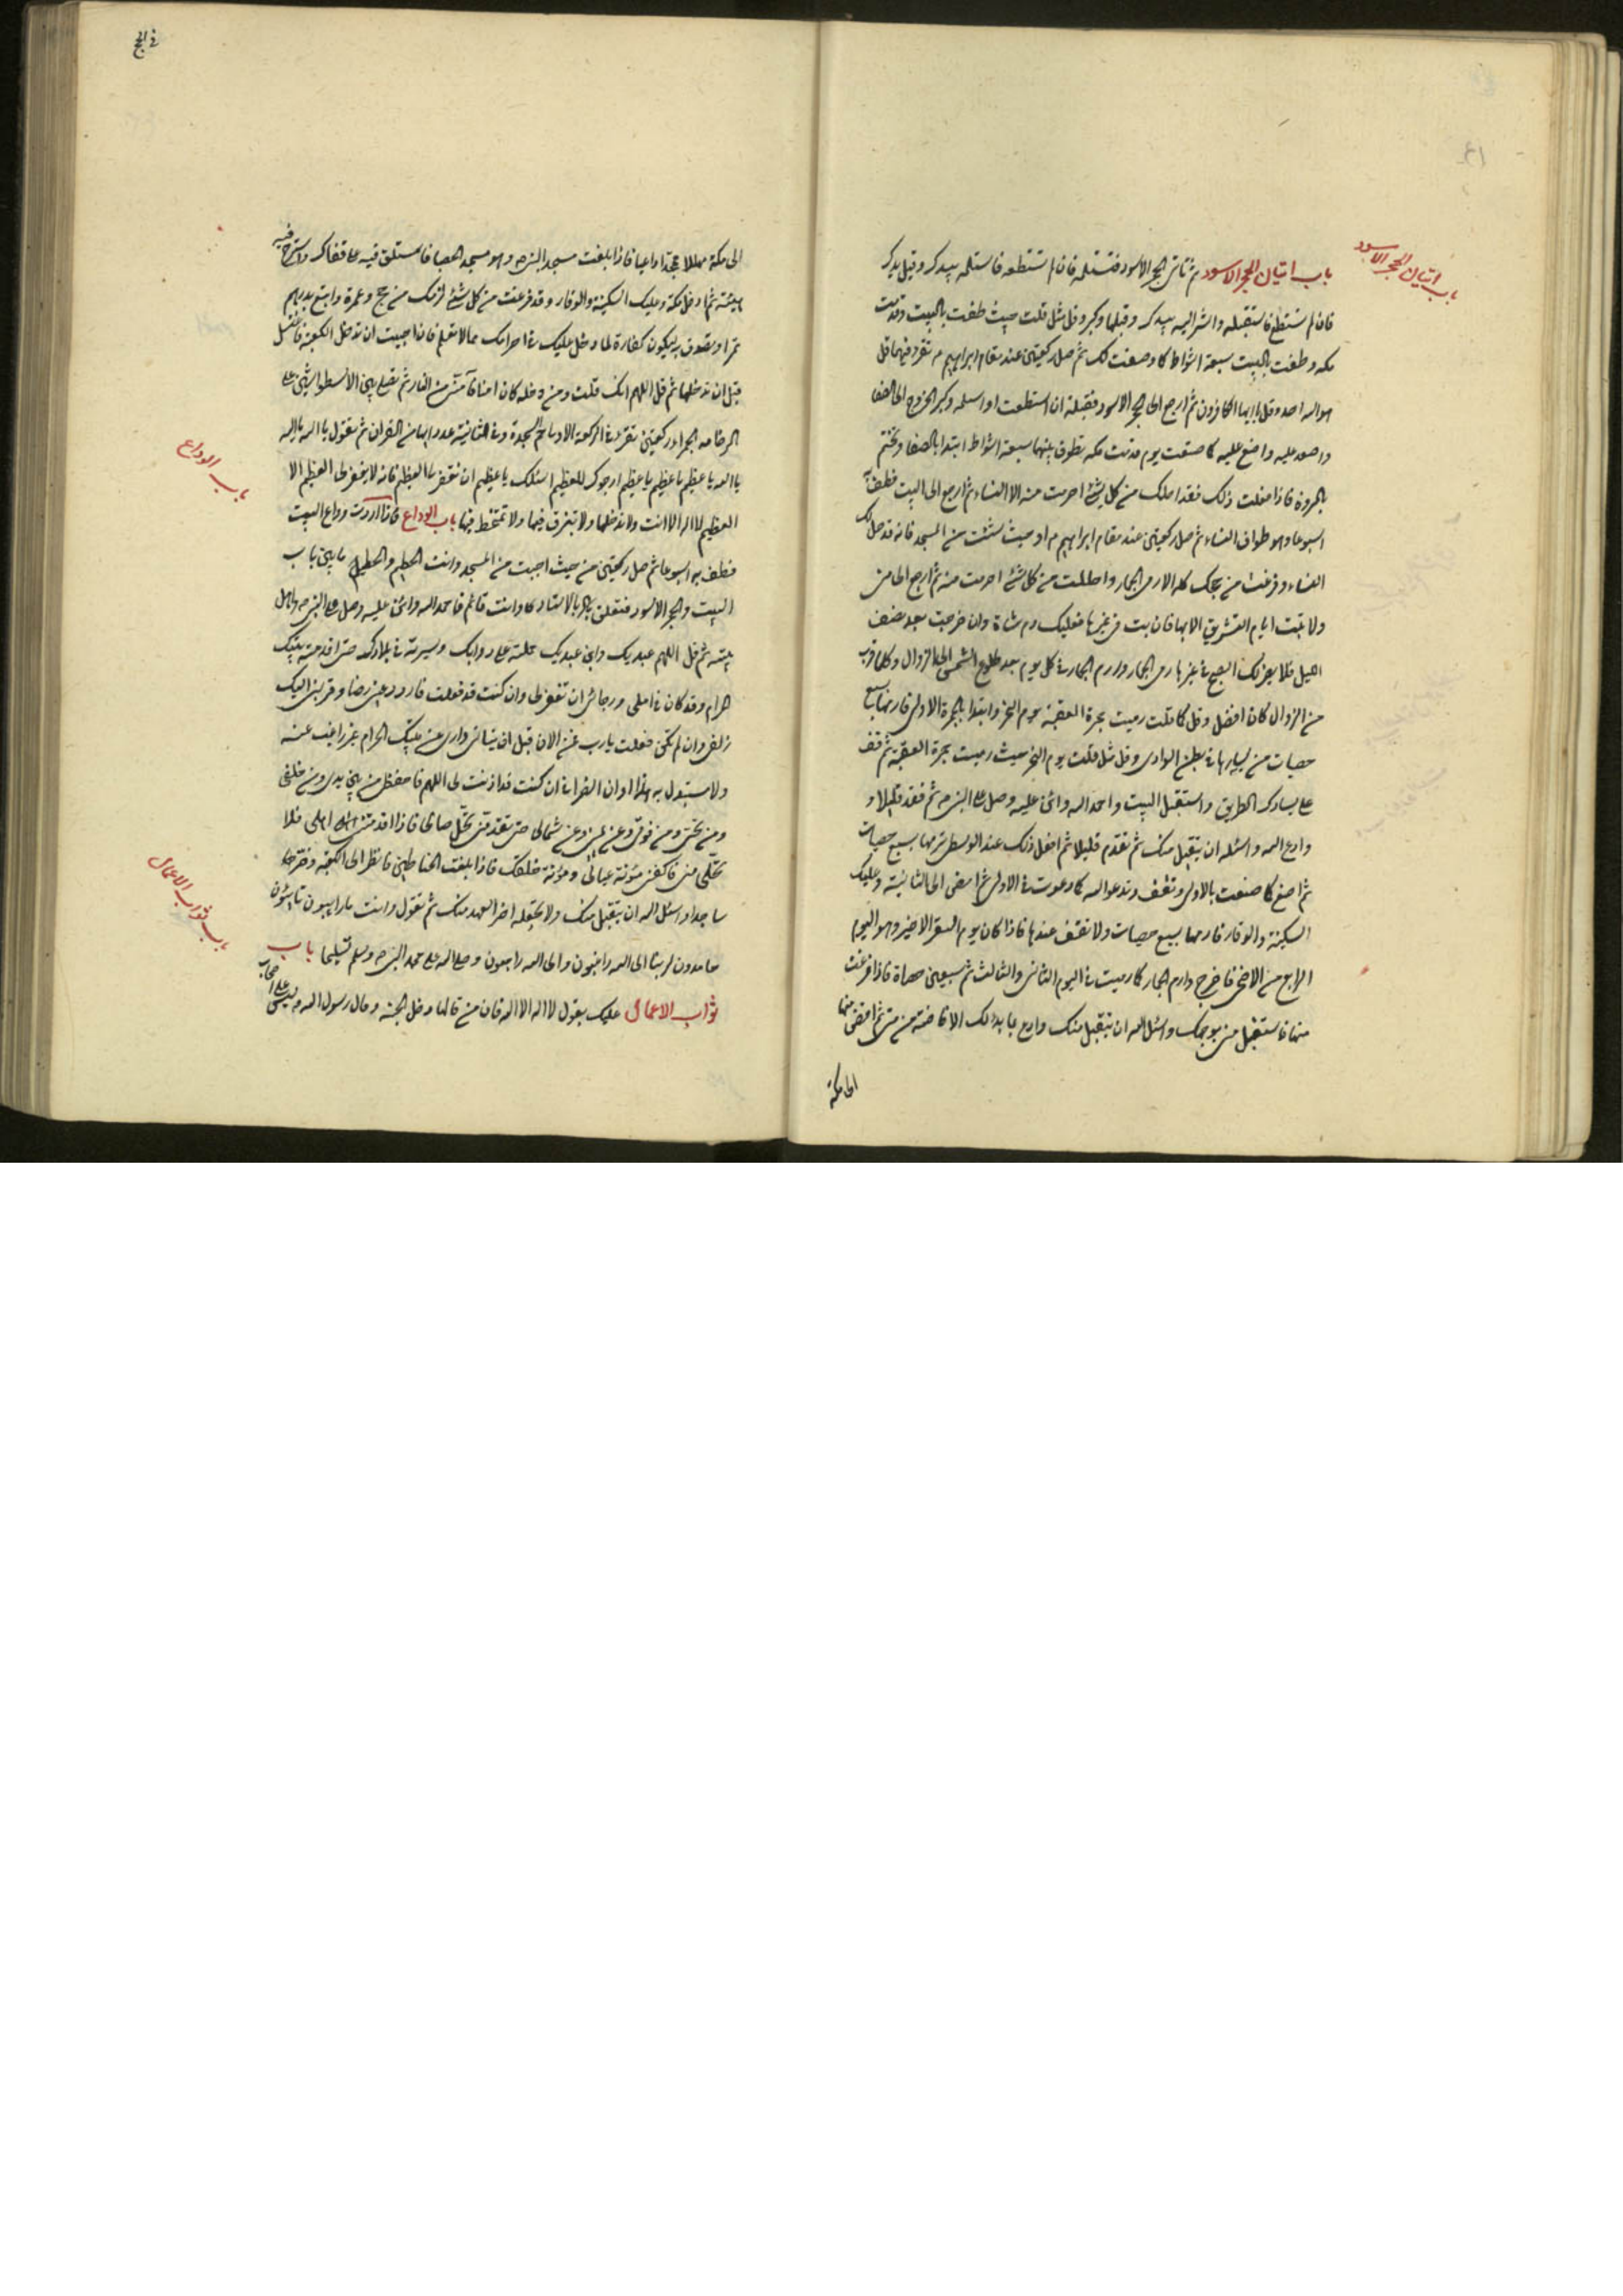 باب اتيان الحجر الاسود
باب اتيان الحجر الاسود ثم تأتى الحجر الاسود فتستلمه فان لم تستطعه فاستلمه بيدك وقبل يدك
فان لم تستطع فاستقبله واشر اليه بيدك وقبلها وكبر وقل مثل ما قلت حيث طفت بالبيت وقدمت
مكه وطفت بالبيت سبعة اشواط كما وصفت لك ثم صل ركعتين عند مقام ابراهيم م تقرء فيهما قل
هو الله احد وقل يا ايها الكافرون ثم ارجع الى الحجر الاسود فقبله ان استطعت او استلمه وكبر الخروج الى الصفا
واصعد عليه واصنع عليه كما صنعت يوم قدمت مكه تطوف بينهما سبعة اشواط ابتدا بالصفا وتختم
بالمروة فاذا فعلت ذلك فقد احللت من كل شئ احرمت منه الا النساء ثم ارجع الى البيت فطف به
اسبوعا وهو طواف النساء ثم صل ركعتين عند مقام ابراهيم م او حيث شئت من المسجد فانه قد حل لك
النساء وفرغت من حجك كله الا رمى الجمار واحللت من كل شئ احرمت منه ثم ارجع الى منى
ولا تبت ايام التشريق الا بها فان بت فى غيرها فعليك دم شاة وان خرجت بعد نصف
الليل فلا يضرك الصبح فى غيرها رمى الجمار وارم الجمار فى كل يوم بعد طلوع الشمس الى الزوال وكلما قرب
من الزوال كان افضل وقل كما قلت رميت جمرة العقبة يوم النحر وابتدا بالجمرة الاولى فارمها بسبع
حصيات من يسارها فى بطن الوادى وقل مثل ما قلت يوم النحر حيث رميت جمرة العقبة ثم قف
على يسارك الطريق واستقبل البيت واحمد الله واثن عليه وصل على النبى ص ثم تقدم قليلا و
وادع الله واسئله ان يتقبل منك ثم تقدم قليلا ثم افعل ذلك عند الوسطى ترميها بسبع حصيات
ثم اصنع كما صنعت بالاولى وتقف وتدعو الله كما دعوت فى الاولى ثم امض الى الثالثة وعليك
السكينة والوقار فارمها بسبع حصيات ولا تقف عندها فاذا كان يوم النفر الاخير وهو اليوم
الرابع من الاضحى فاخرج وارم الجمار كما رميت فى اليوم الثانى والثالث ثم سبعين حصاة فاذا فرغت
منها فاستقبل منى بوجهك واسئل الله ان يتقبل منك وادع بما بدا لك الافاضة من منى ثم امض منها
الى مكة
فى الحج
الى مكة مهللا ممجدا داعيا فاذا بلغت مسجد النبى ص وهو مسجد الحصبا فاستلق فيه على قفاك واسترح فيه
هنيئة ثم ادخل مكة وعليك السكينة والوقار وقد فرغت من كل شئ لزمك من حج وعمرة وابتع بدرهم
تمرا وتصدق به ليكون كفارة لما دخل عليك فى احرامك مما لا تعلم فان احببت ان تدخل الكعبة فاغتسل
قبل ان تدخلها ثم قل اللهم انك قلت ومن دخله كان امنا فآمنى من النار ثم تصلى بين الاسطوانتين على
الرخامة الحمراء ركعتين تقرء فى الركعة الاولى حم السجدة وفى الثانية عدد ايها من القران ثم تقول يا الله يا الله
يا الله يا عظيم يا عظيم يا عظيم ارجوك للعظيم اسئلك يا عظيم ان تغفر لى العظيم فانه لا يغفر لى العظيم الا
العظيم لا اله الا انت ولا تدخلها ولا تبزق فيها ولا تمتخط فيها باب الوداع فاذا اردت وداع البيت
باب الوداع
فطف به اسبوعا ثم صل ركعتين من حيث احببت من المسجد وائت الحطيم والحطيم ما بين باب
البيت والحجر الاسود فتعلق بالاستار وانت قائم فاحمد الله واثن عليه وصل على النبى ص واهل
بيته ثم قل اللهم عبدك وابن عبديك حملته على دوابك وسيرته فى بلادك حتى اقدمته بيتك
الحرام وقد كان فى املى ورجائى ان تغفر لى وان كنت قد فعلت فازدد عنى رضا وقربنى اليك
زلفى وان لم تكن فعلت يارب فمن الان قبل ان تنائى دارى عن بيتك الحرام غير راغب عنه
ولا مستبدل به هذا اوان انصرافى ان كنت قد اذنت لى اللهم فاحفظنى من بين يدى ومن خلفى
ومن تحتى ومن فوقى وعن يمينى وعن شمالى حتى تقدمنى اهلى صالحا فاذا اقدمتنى اهلى فلا
تخلى منى فاكفنى مؤنة عيالى ومؤنة خلقك فاذا بلغت الحناطين فانظر الى الكعبة وخر
باب ثواب الاعمال
ساجدا واسئل الله ان يتقبل منك ولا يجعله اخر العهد منك ثم تقول وانت مار ايبون تائبون
حامدون لربنا الى الله راغبون والى الله راجعون وصلى الله على محمد النبى ص وسلم تسليما باب
ثواب الاعمال عليك بقول لا اله الا الله فان من قالها دخل الجنة وقال رسول الله ص ليس على اصحاب